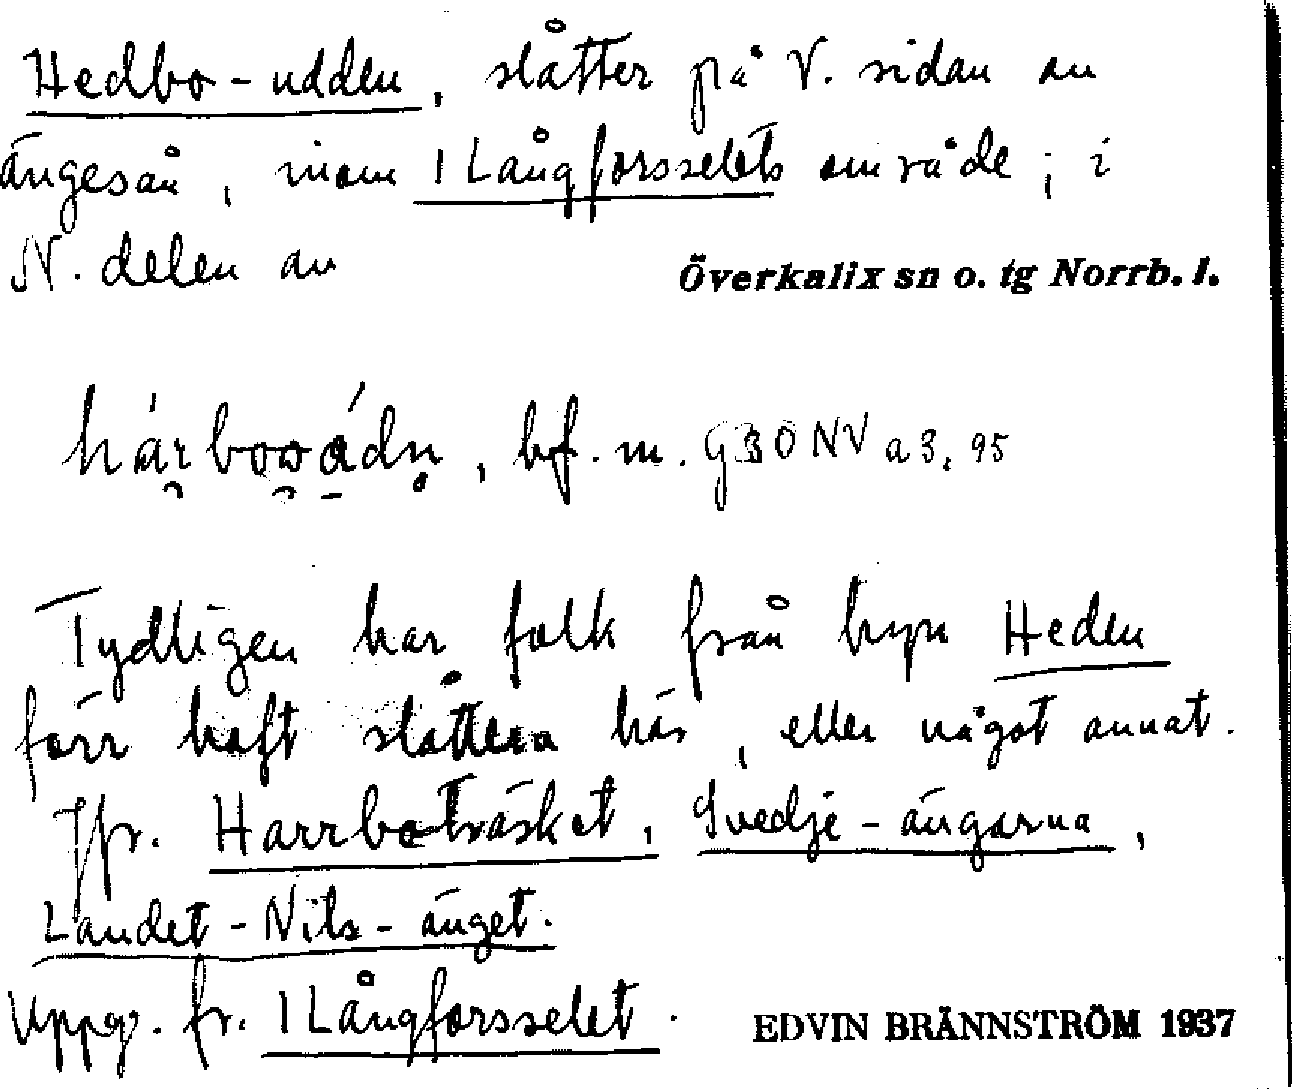 Hedbo-udden, slåtter på V. sidan av
ängesån, inom 1 Långforsselets område; i
N. delen av
Överkalix sn o. tg Norrb. l.
bf. m. G 30 NV a 3, 95
Tydligen har folk från byn Heden
förr haft slåttern här, eller något annat.
Jfr. Harrboträsket, Svedje-ängarna,
Landet-Nils-änget.
Uppg. fr. 1 Långforsselet.
EDVIN BRÄNNSTRÖM 1937